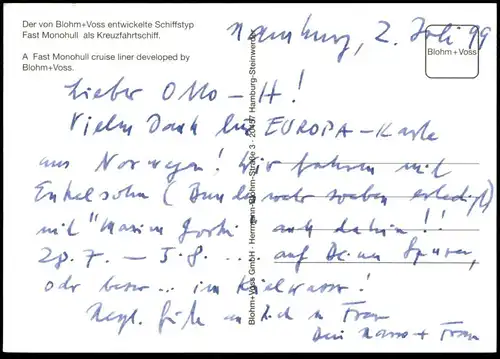 Der von Blohm+Voss entwickelte Schiffstyp
Fast Monohull als Kreuzfahrtschiff.
A Fast Monohull cruise liner developed by
Blohm+Voss.
Hamburg, 2. Juli 99
Blohm+Voss
Lieber Otto-H!
Vielen Dank für EUROPA-Karte
aus Norwegen! Wir fahren mit
Enkelsohn (Bundeswehr soeben erledigt)
mit "Maxim Gorki auch dahin!!
28.7. – 5.8. ... auf Deinen Spuren,
oder besser ... im Kielwasser!
Herzl. Grüße an Dich u Frau
Dein + Frau
Blohm+Voss GmbH · Hermann-Blohm-Straße 3 · 20457 Hamburg-Steinwerder